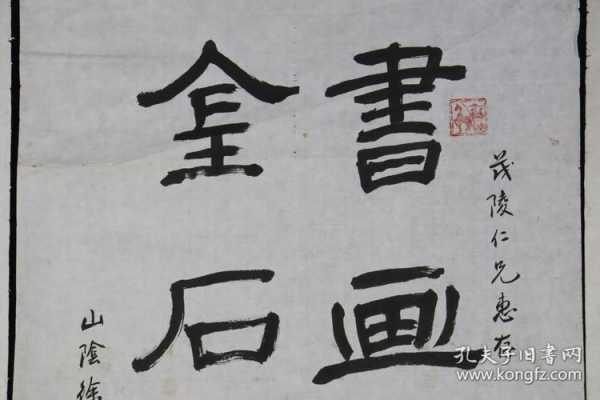 茂陵仁兄惠存
書画
金石
山陰徐
孔夫子旧书网
www.kongfz.com